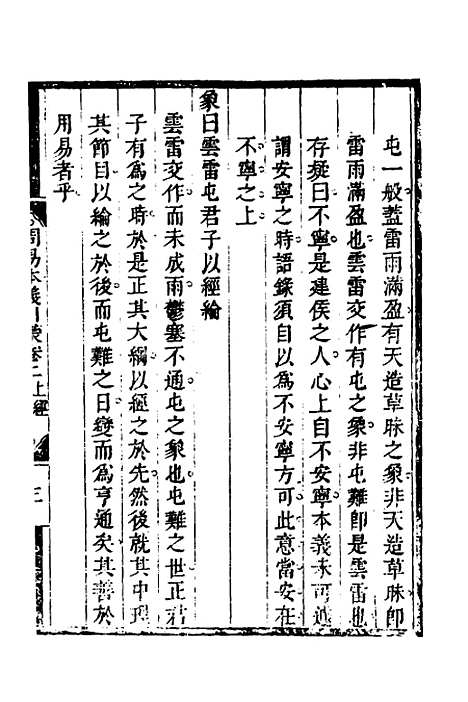 屯一般蓋雷雨滿盈有天造草昧之象非天造草昧卽
雷雨滿盈也雲雷交作有屯之象非屯難卽是雲雷也
存疑曰不寧是建侯之人心上自不安寧本義未可遽
謂安寧之時語錄須自以爲不安寧方可此意當安在
不寧之上
象曰雲雷屯君子以經綸
雲雷交作而未成雨鬱塞不通屯之象也屯難之世正君
子有爲之時於是正其大綱以經之於先然後就其中理
其節目以綸之於後而屯難之日變而爲亨通矣其善於
用易者乎
周易本義引蒙卷二上經
三